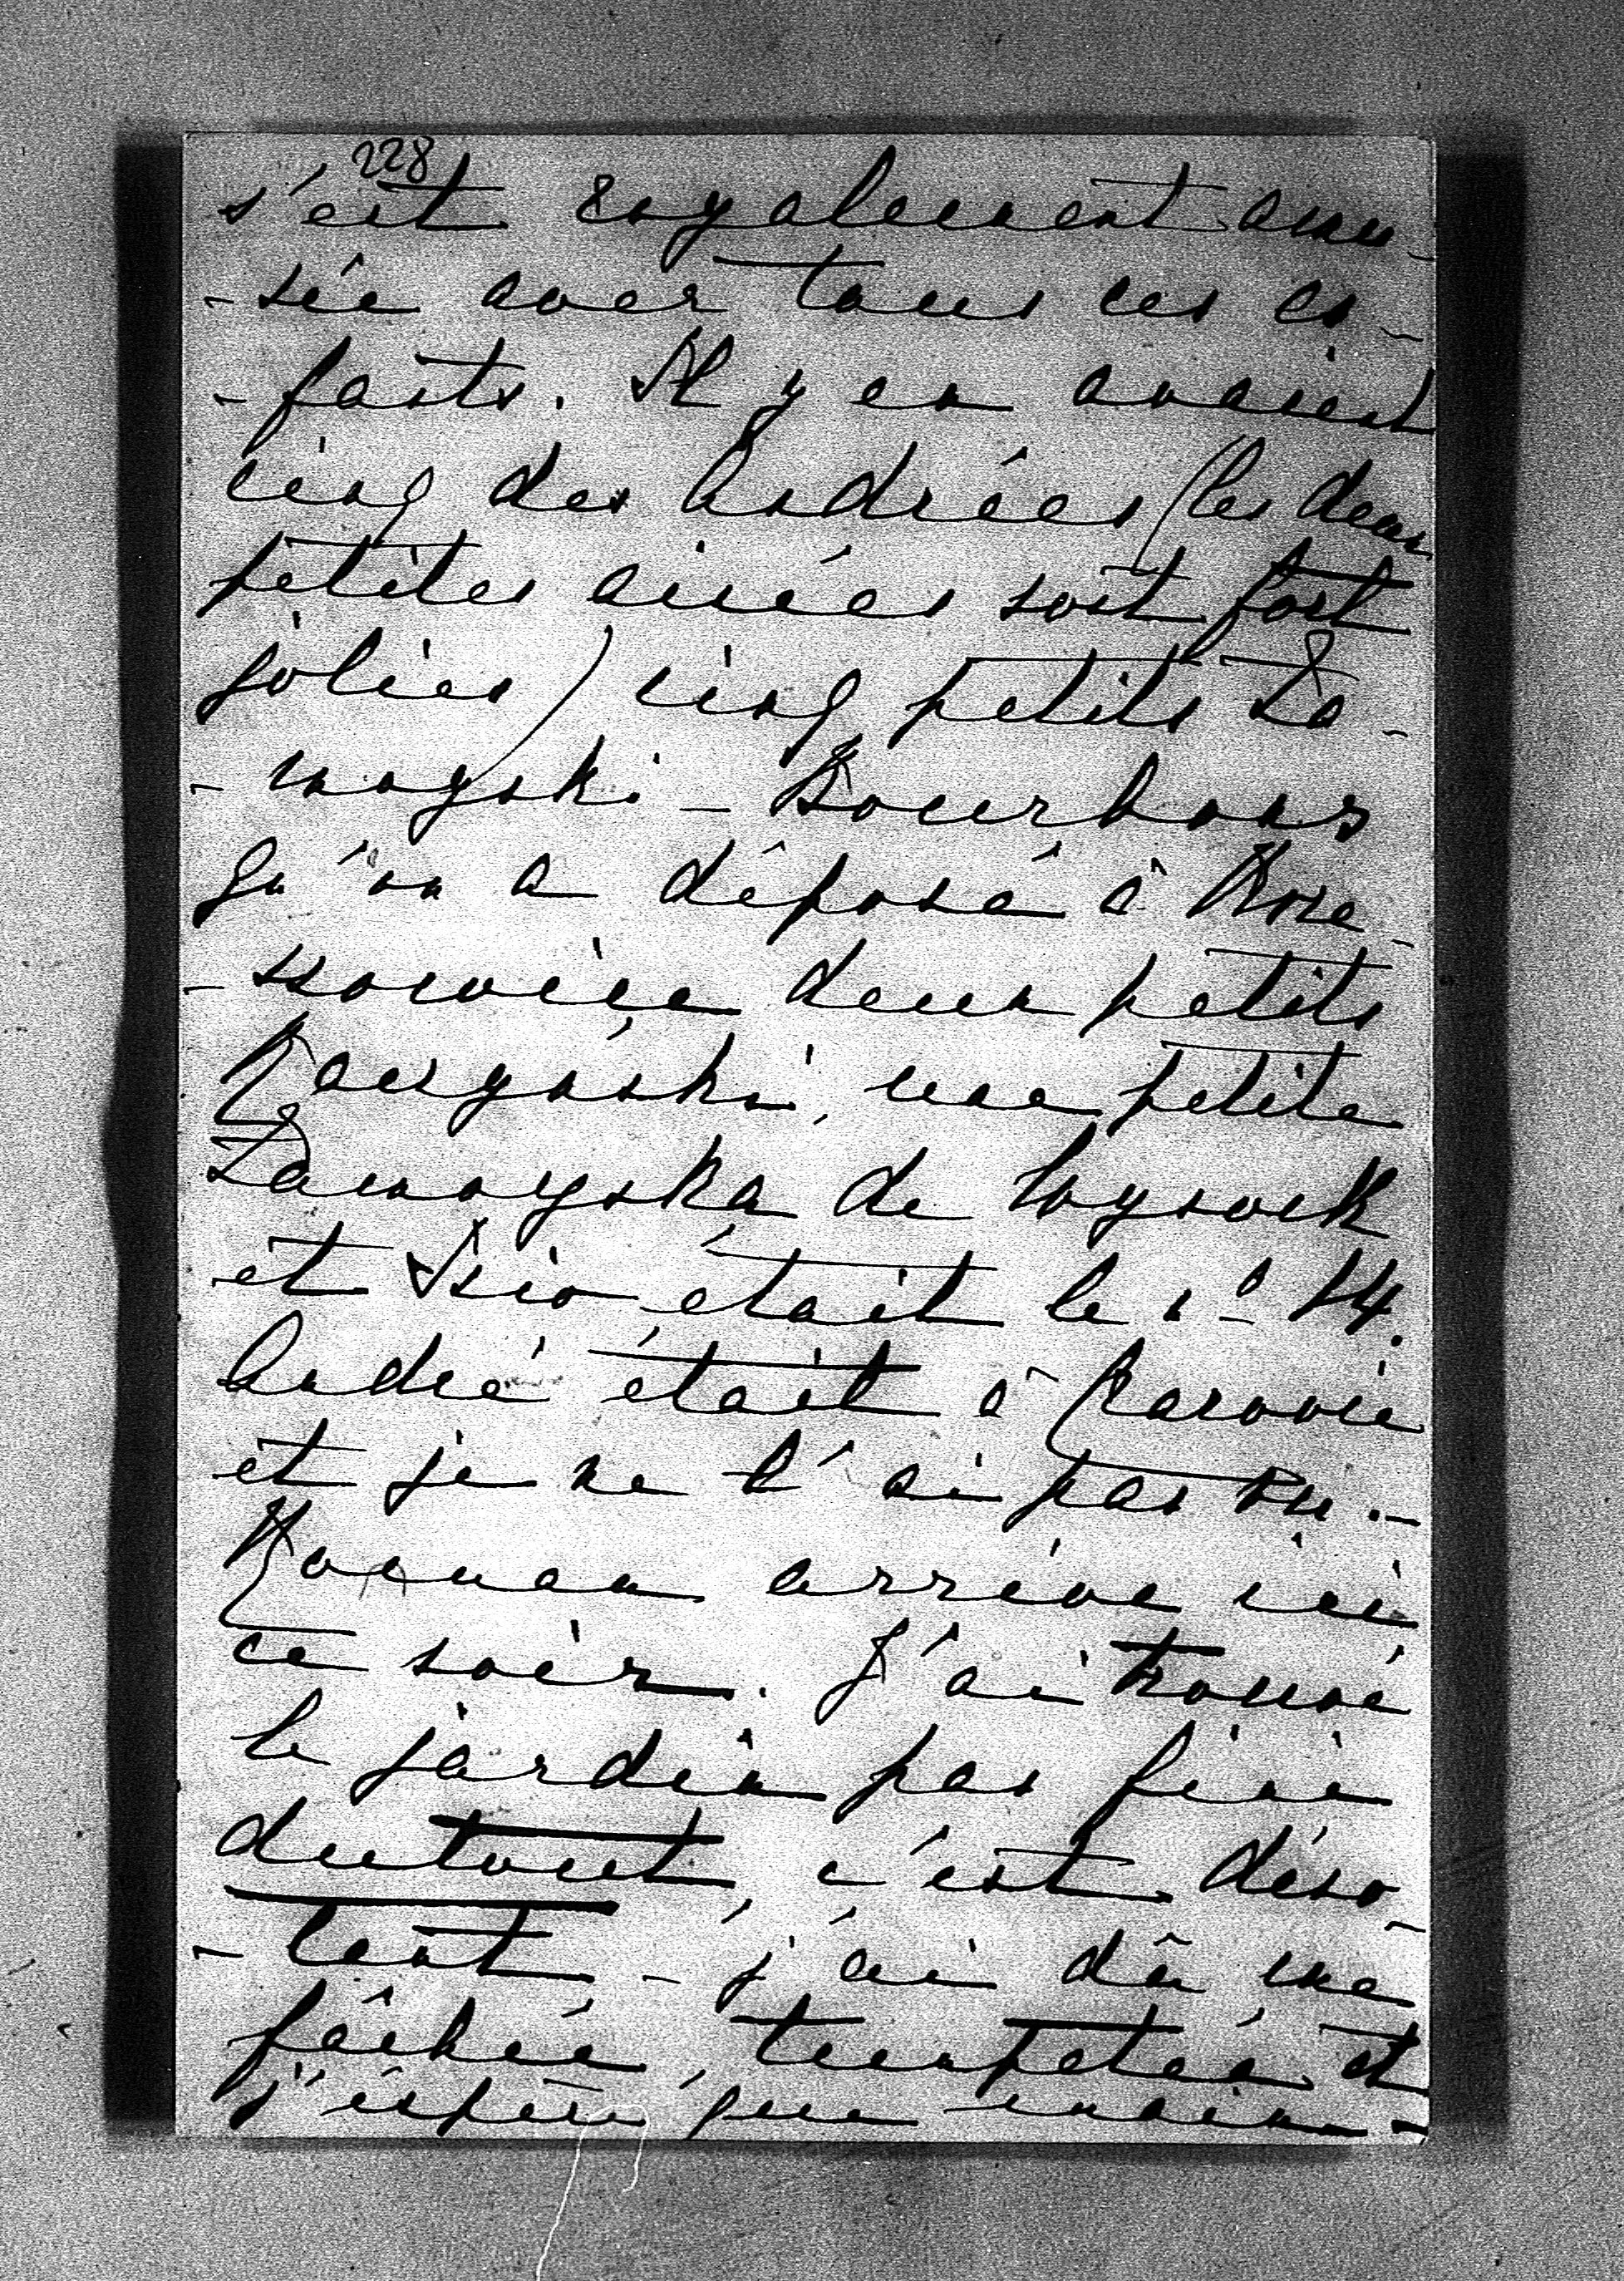 228
s'est royalement amu-
-sée avec tous ces en-
-fants. Il y en avaient
cinq des Andrées (les deux
petites ainées sont fort
jolies) cinq petits Za-
-moyski - Bourbons
qu'on a déposé à Kre-
deux petits
une petite
Zamoyska de Wysock
et était le No 14.
André était à Varsovie
et je ne l'ai pas vu. -
Roman arrive ici
ce soir. J'ai trouvé
le jardin pas fini
du tout, c'est déso-
-lant - j'ai dû me
fâchée, tempetée, et
j'espère que